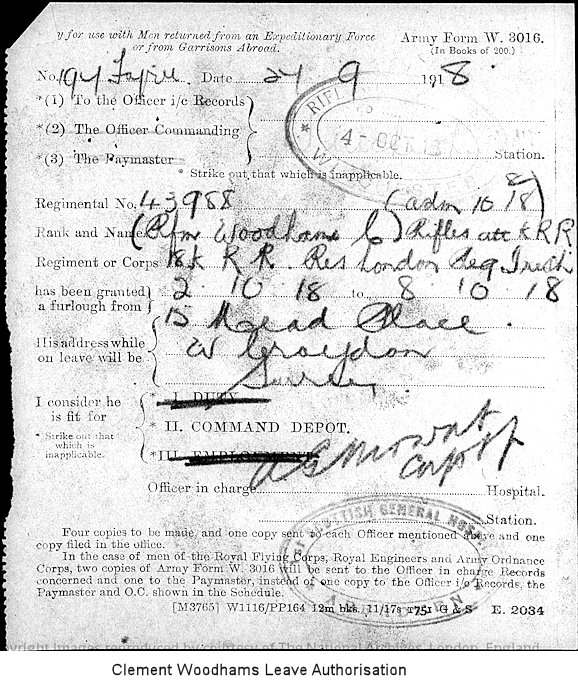 y for use with Men returned from an Expeditionary Force
or from Garrisons Abroad.
Army Form W. 3016.
(In Books of 200.)
No. 194 Date 27 9 1918
*(1) To the Officer i/c Records
*(2) The Officer Commanding
*(3) The Paymaster
Station.
* Strike out that which is inapplicable.
RIFL
4 - OCT
Regimental No. 43988 (adm 10 8/18)
Rank and Name (Rfm Woodhams C) Rifles att K R R
Regiment or Corps 18 K R R. Res London Reg
has been granted
a furlough from 2 10 18 to 8 10 18
His address while
on leave will be
15 Mead Place.
W Croydon
Surrey
I consider he
is fit for
* Strike out that
which is
inapplicable.
* I. DUTY
* II. COMMAND DEPOT.
*III. EMPLOYMENT
Capt
Officer in charge Hospital.
Station.
SCOTTISH GENERAL HOS
Four copies to be made, and one copy sent to each Officer mentioned above and one
copy filed in the office.
In the case of men of the Royal Flying Corps, Royal Engineers and Army Ordnance
Corps, two copies of Army Form W. 3016 will be sent to the Officer in charge Records
concerned and one to the Paymaster, instead of one copy to the Officer i/c Records, the
Paymaster and O.C. shown in the Schedule.
[M3765] W1116/PP164 12m bks. 11/17s 1751 G & S. E. 2034
Clement Woodhams Leave Authorisation